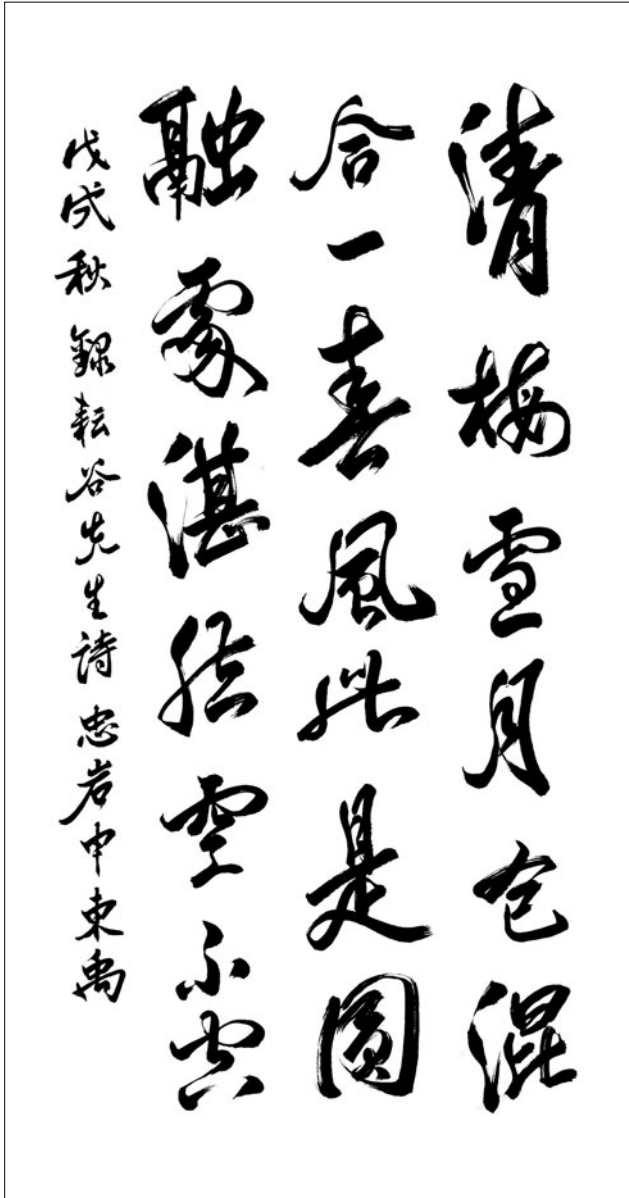 清梅雪月色混
合一春風此是圓
融處湛然空不空
戊戌秋 錄耘谷先生詩 忠岩申東禹